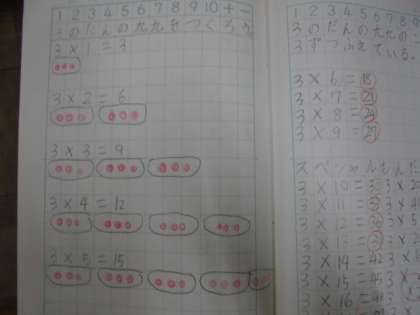 1 2 3 4 5 6 7 8 9 10 + −
3のだんの九九をつくろう
3×1=3
3×2=6
3×3=9
3×4=12
3×5=15
1 2 3 4 5 6 7 8
3のだんの九九の
3ずつふえている。
3×6=18
3×7=21
3×8=24
3×9=27
スペシャルもんだ
3×10=3
3×11=3
3×12=3
3×13=3
3×14=42 3×
3×15=45 3×
3×16=48 3×